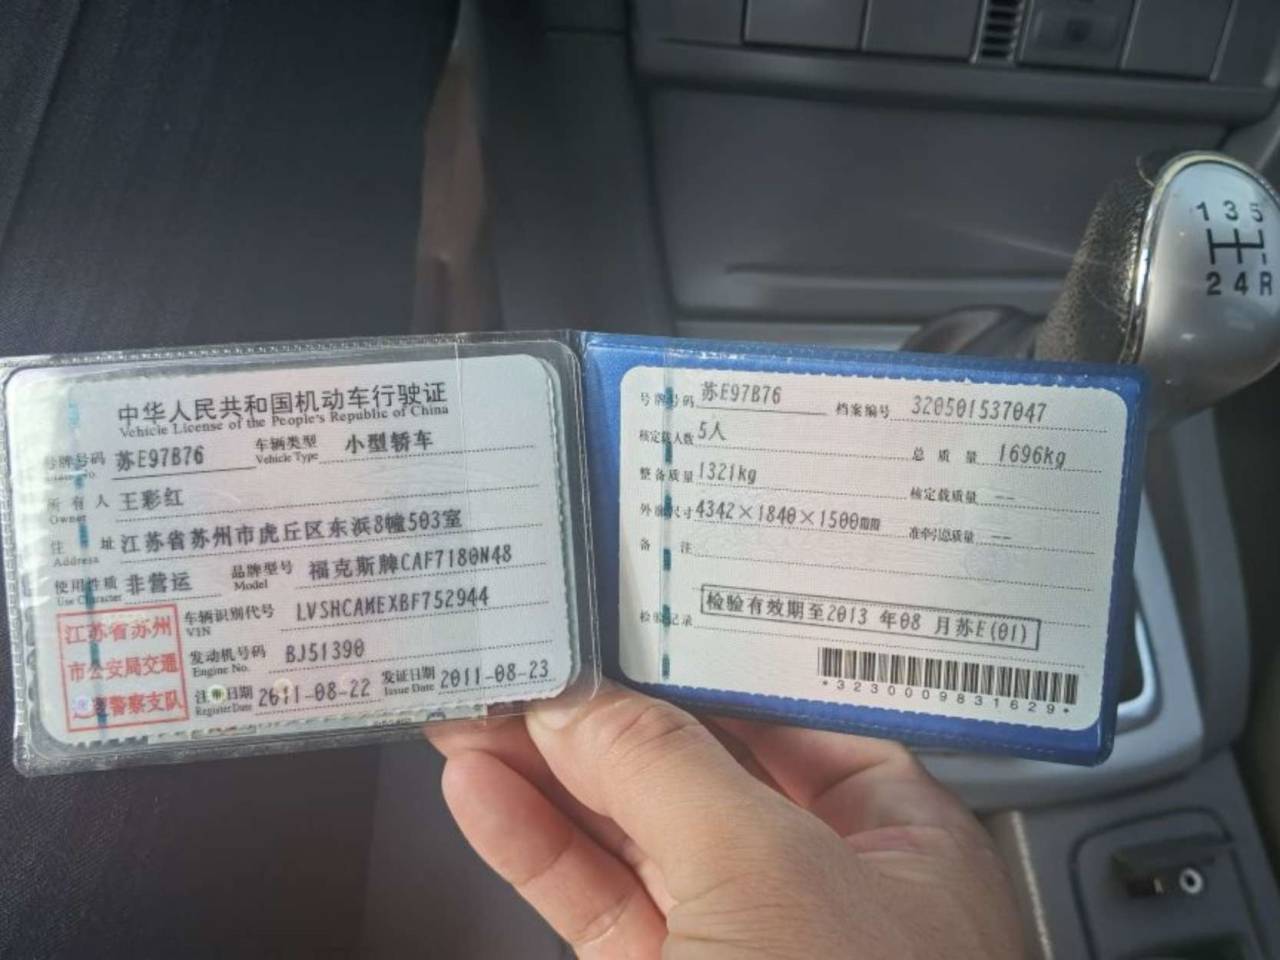 中华人民共和国机动车行驶证
Vehicle License of the People's Republic of China
号牌号码 苏E97B76 车辆类型 小型轿车
Vehicle Type
所有人 王彩红
Owner
住址 江苏省苏州市虎丘区东浜8幢503室
Address
使用性质 非营运 品牌型号 福克斯牌CAF7180N48
Use Character Model
车辆识别代号 LVSHCAMEXBF752944
VIN
发动机号码 BJ51390
Engine No.
注册日期 2011-08-22 发证日期 2011-08-23
Register Date Issue Date
江苏省苏州
市公安局交通
巡逻警察支队
号牌号码 苏E97B76 档案编号 320501537047
核定载人数 5人 总质量 1696kg
整备质量 1321kg 核定载质量 --
外廓尺寸 4342×1840×1500mm 准牵引总质量 --
备注
检验记录 检验有效期至2013 年08 月苏E(01)
*3230009831629*
1 3 5
2 4 R